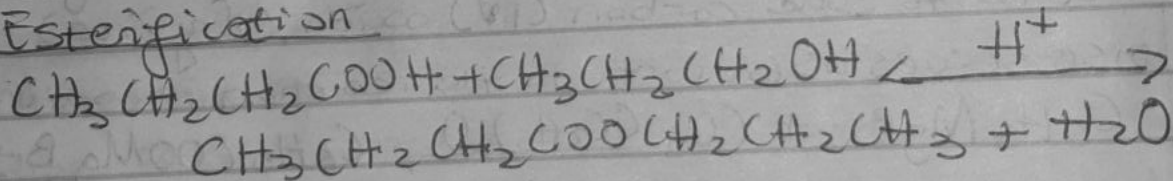 Esterification
CH₃CH₂CH₂COOH + CH₃CH₂CH₂OH <—H⁺—>
CH₃CH₂CH₂COOCH₂CH₂CH₃ + H₂O